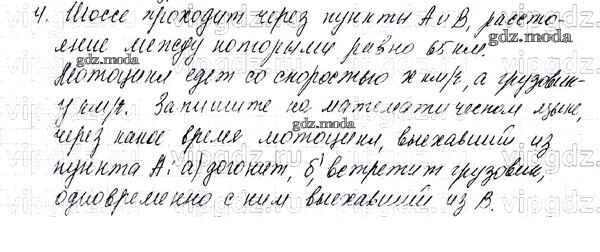 4. Шоссе проходит через пункты А и В, рассто-
яние между которыми равно 65 км.
Мотоцикл едет со скоростью x км/ч, а грузовик-
y км/ч. Запишите на математическом языке,
через какое время мотоцикл, выехавший из
пункта А: а) догонит, б) встретит грузовик,
одновременно с ним выехавший из В.
gdz.moda
gdz.moda
gdz.moda
gdz.moda
gdz.moda